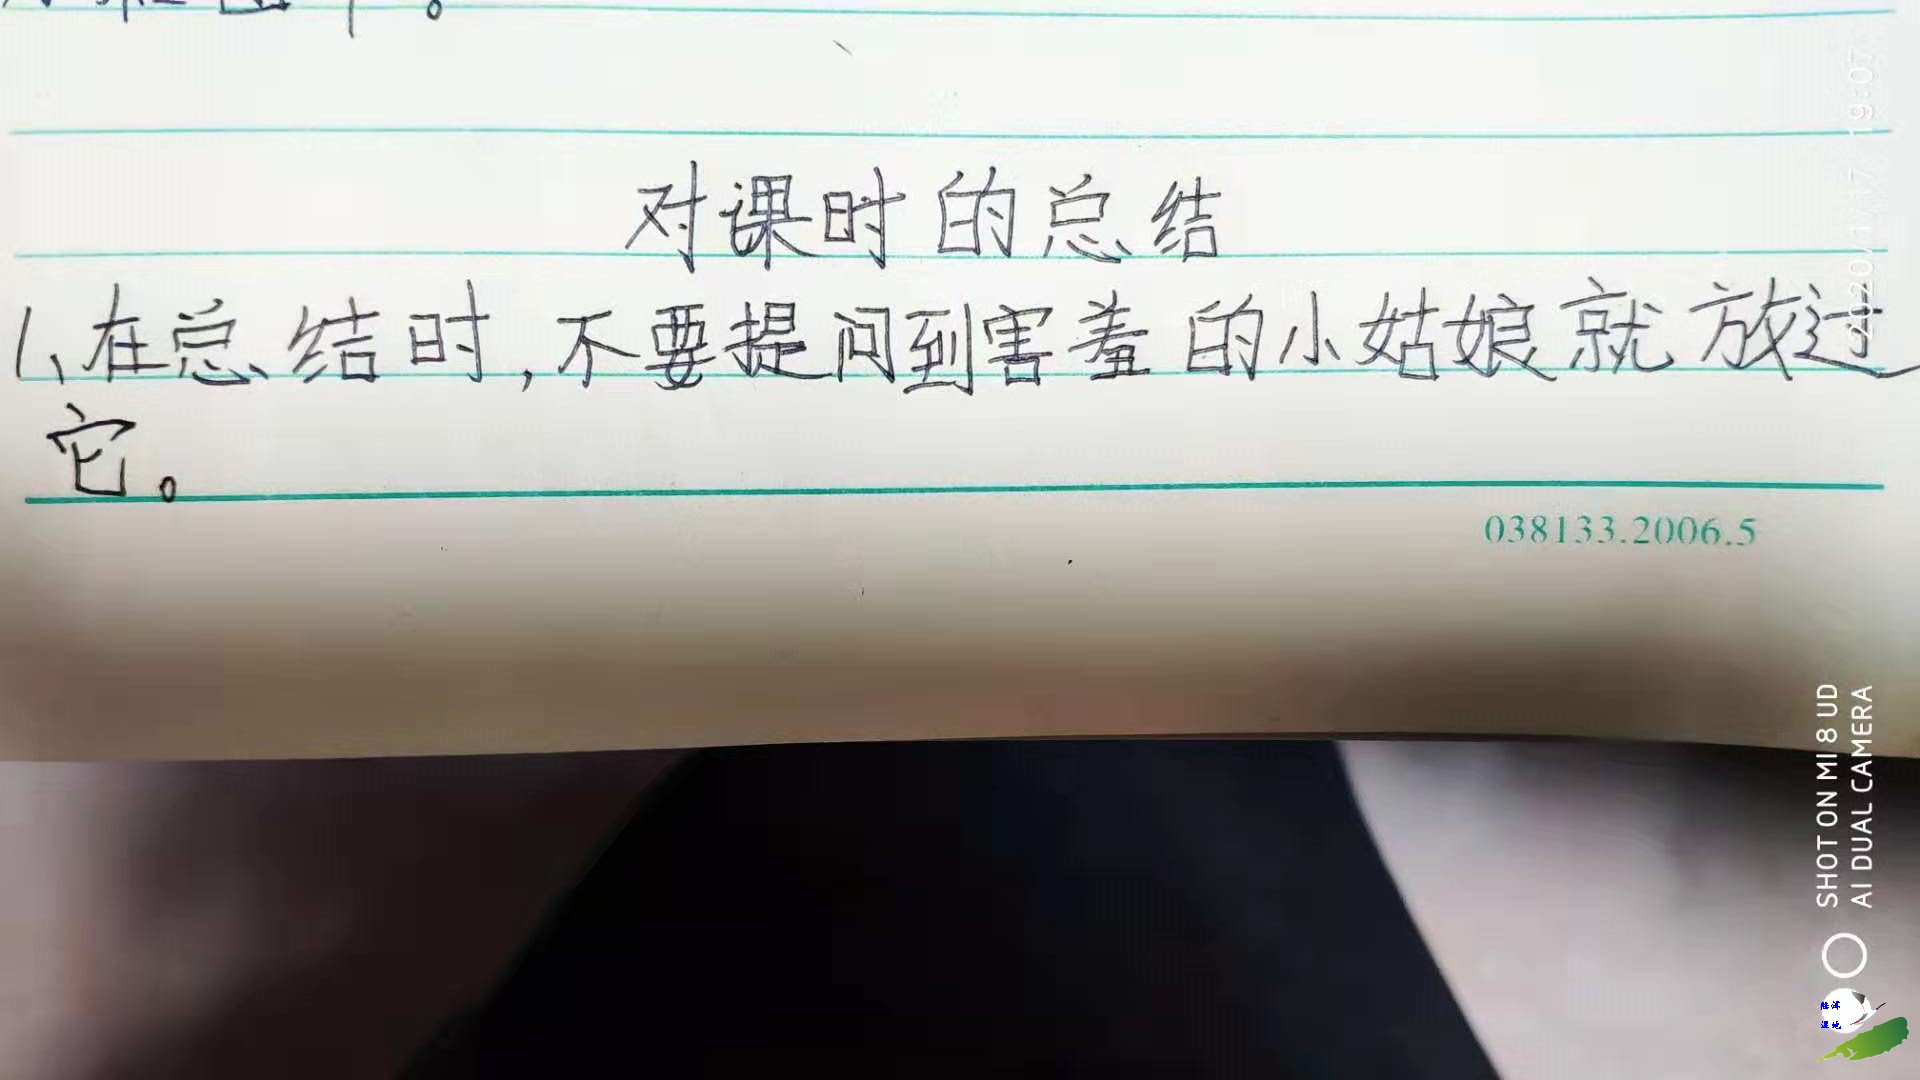 对课时的总结
1、在总结时,不要提问到害羞的小姑娘就放过
它。
038133.2006.5
2020/1/17 19:07
SHOT ON MI 8 UD
AI DUAL CAMERA